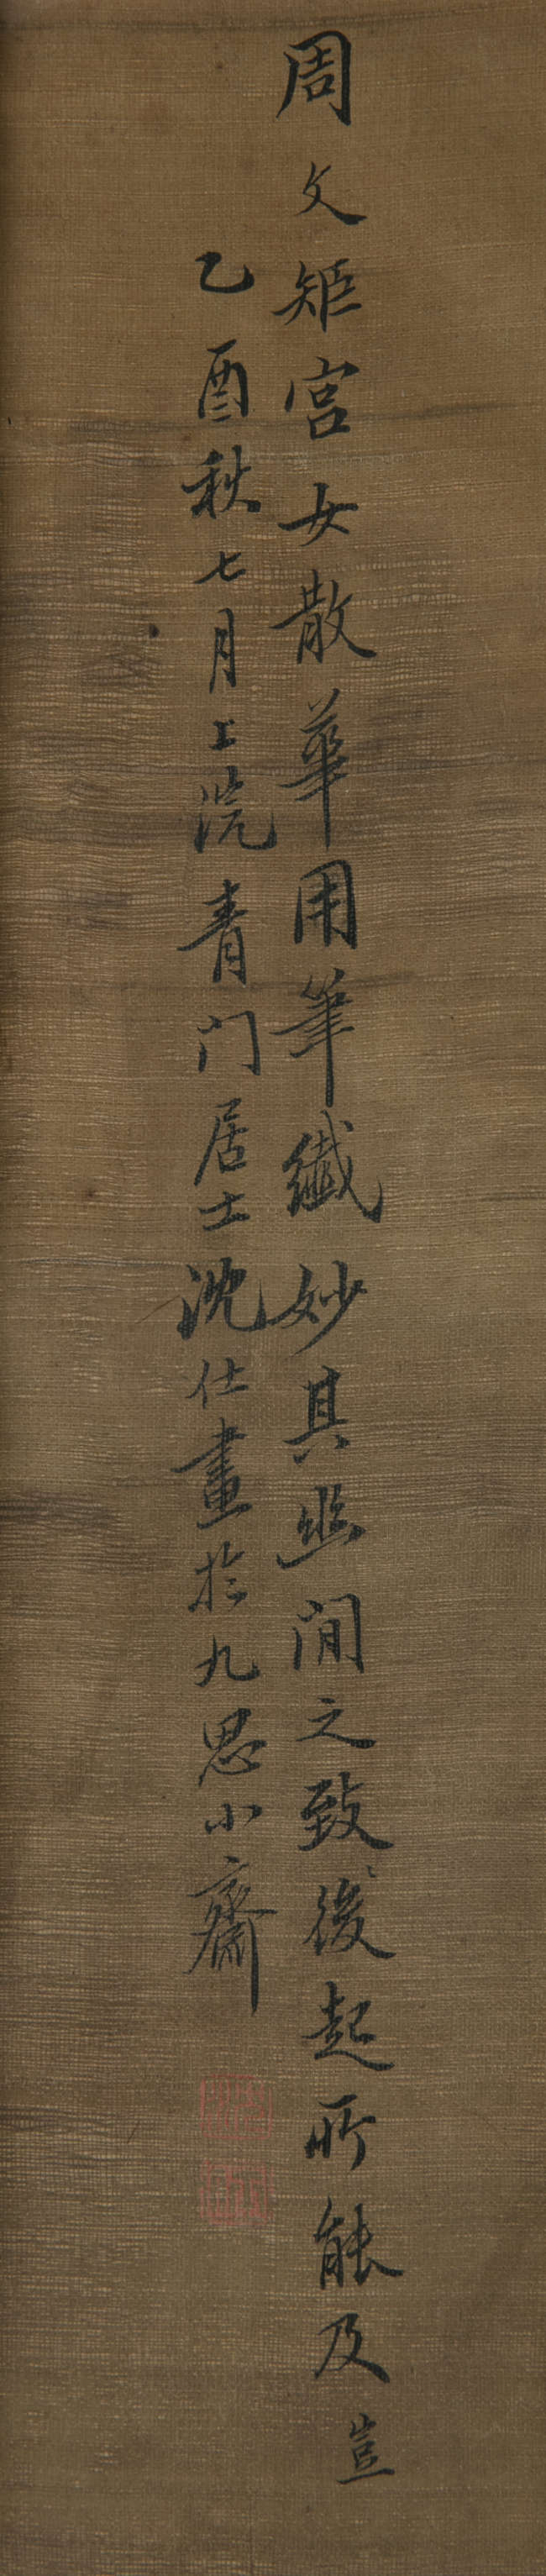 周文矩宮女散華用筆纖妙其幽閒之致後起所能及豈
乙酉秋七月上浣青门居士沈仕畫於九思小齋